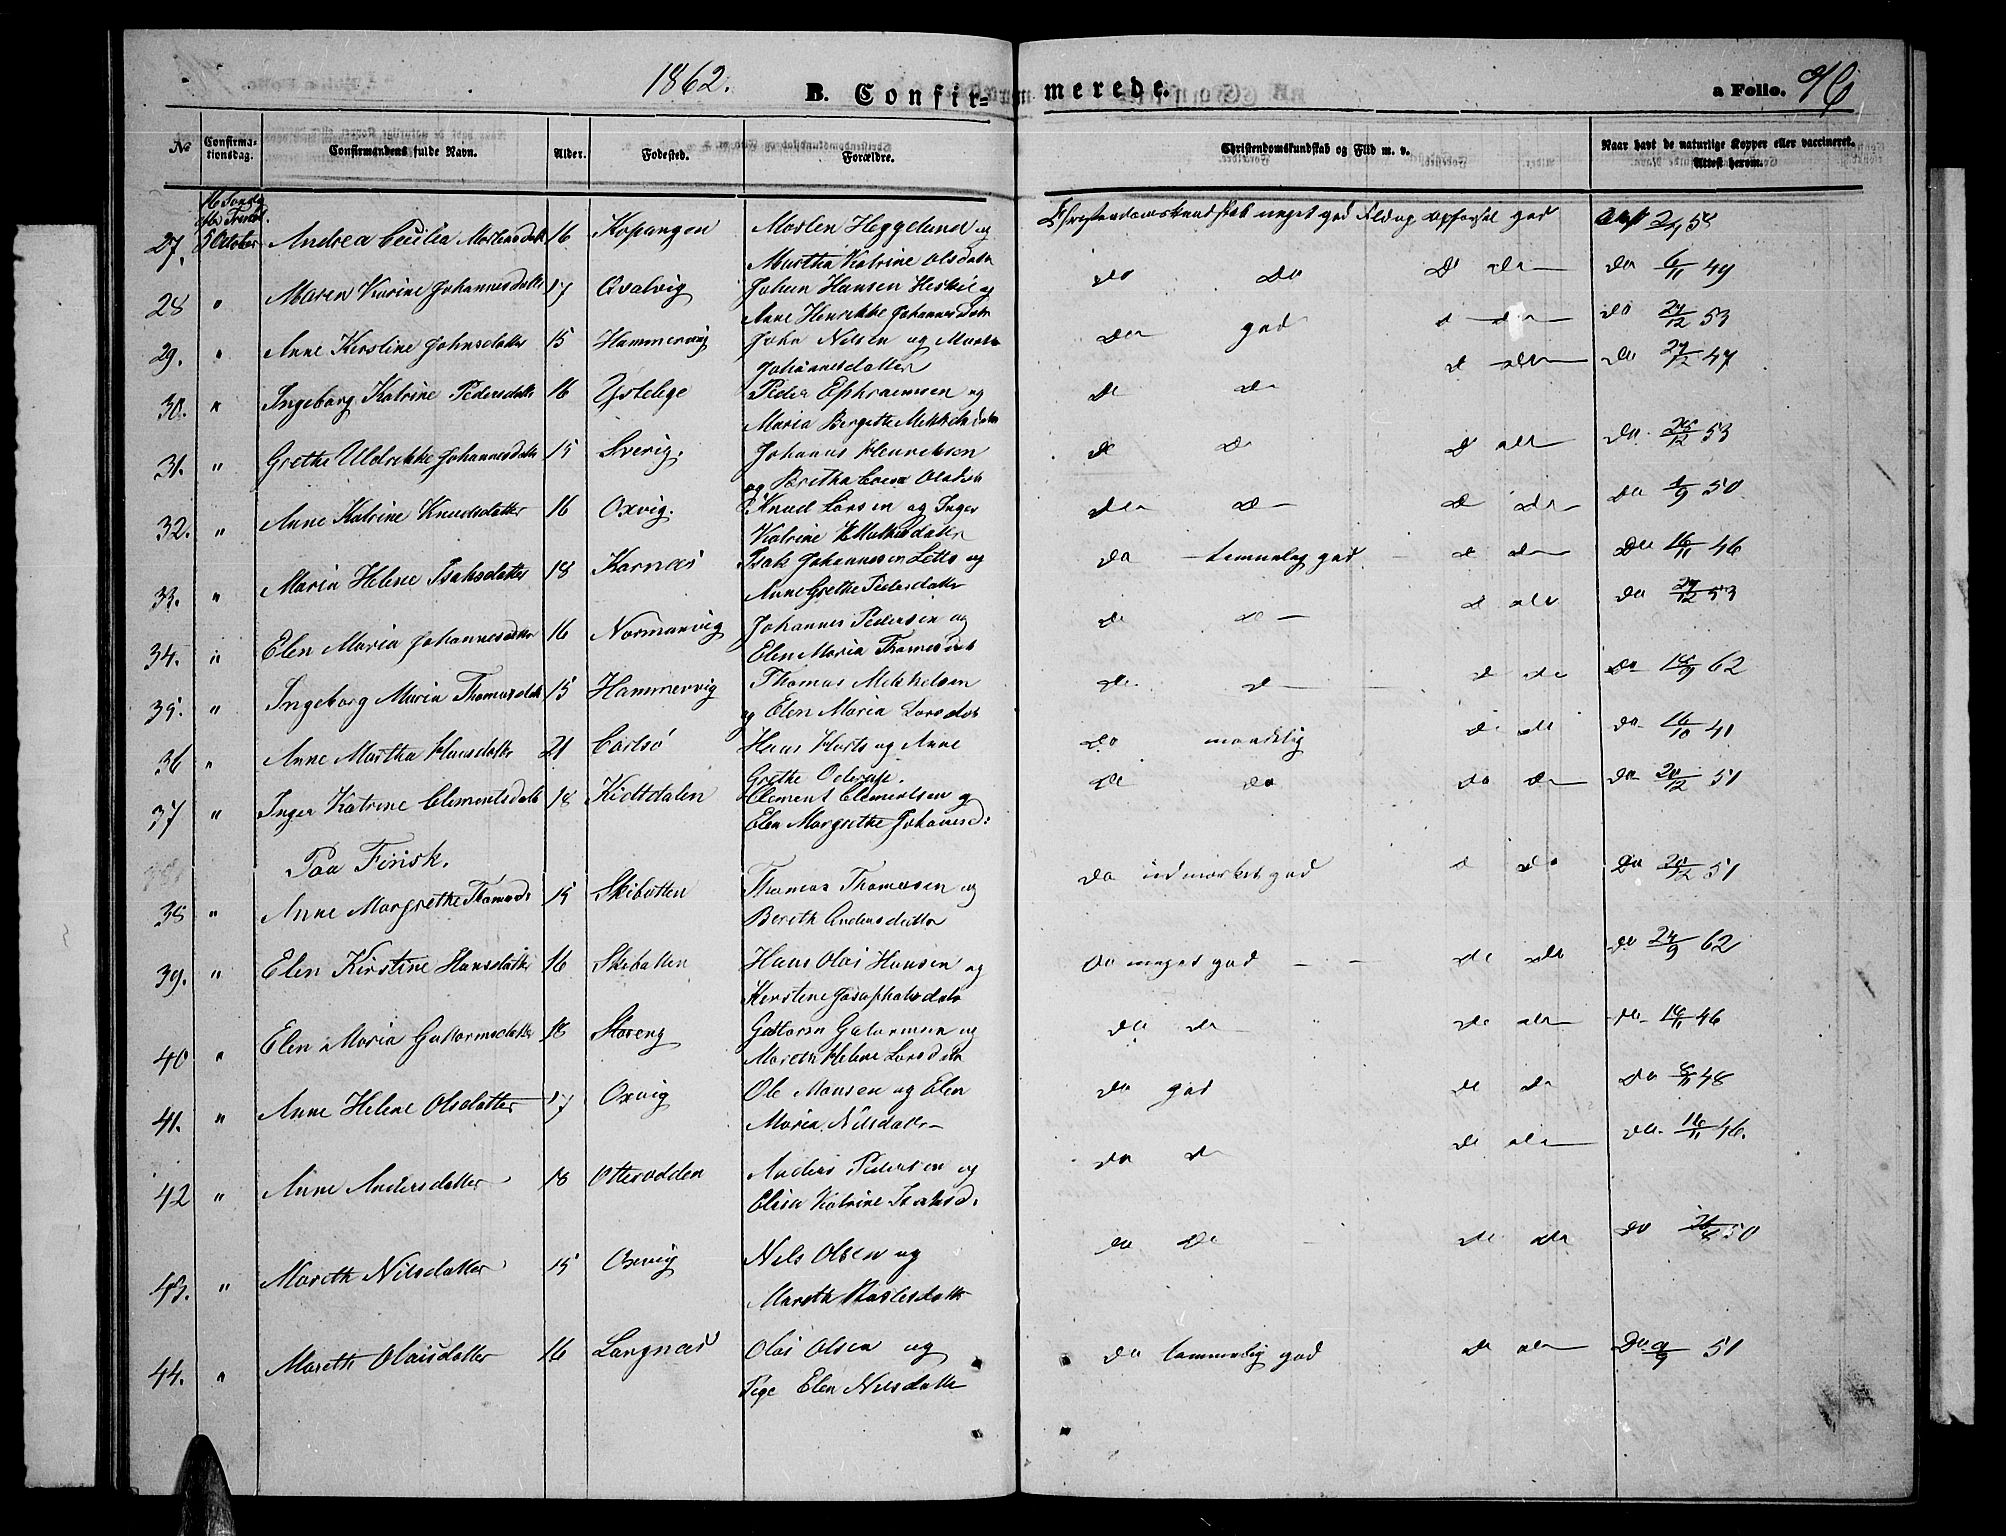 1862. B. Confir- merede. a Folio. 96
No Confirma- tionsdag. Confirmandens fulde Navn. Alder. Fødested. Forældre. Christendomskundskab og Flid m. v. Naar havt de naturlige Kopper eller vaccineret. Attest herom.
16 Søndag
efter Trinit.
27. 5 October Andrea Cecilia Mortensdatt 16 Kopangen Morten Heggelund og Christendomskundskab meget god Flid og Opførsel god Att 2/7 58
Martha Katrine Olsdatr
28 " Maren Karine Johannesdatt 17 Qvalvig Johan Hansen Heskil og do do d do do 6/11 49
Anne Henrikke Johannesdatr
29. " Anne Kirstine Johnsdatter 15 Hammervig John Nilsen og Marth do god d do do 27/12 53
Johannesdatter
30. " Ingeborg Katrine Pedersdatt 16 Ystelege Peder Ephraimsen og do do d do do 27/12 47
Maria Bergitte Mikkelsdatr
31. " Grethe Uldrikke Johannesdatt 15 Sverig. Johannes Henriksen do do d do do 26/12 53
og Beritha Olsdtr
32. " Anne Katrine Knudsdatter 16 Oxvig. Knud Larsen og Inger do do d do do 1/9 50
Katrine Mathisdatter
33. " Maria Helene Isaksdatter 18 Karnæs Isak Johannesen Letto og do temmelig god d do do 16/11 46
Anne Grethe Pedersdatter
34. " Elen Maria Johannesdatter 16 Normanvig Johannes Pedersen og do do d do do 27/12 53
Elen Maria Thomasdat
35. " Ingeborg Maria Thomasdatt 15 Hammervig Thomas Mikkelsen do do d do do 18/9 62
og Elen Maria Larsdat
36 " Anne Martha Hansdatter 21 Carlsø Hans Horts og Anne do maadelig do do do 16/10 41
Grethe
37 " Inger Katrine Clementsdatt 18 Kidtdalen Clement Clemetsen og do do do do do 20/12 51
Elen Margrethe Johannesd:
Paa Finsk.
38 " Anne Margrethe Thomasd: 15 Skibotten Thomas Thomasen og do udmærket god d do do 20/12 51
Berith Andersdatter
39. " Elen Kirstine Hansdatter 16 Skibotten Hans Olai Hansen og do meget god do do do 24/9 62
Kirstine Josaphatsdatr
40 " Elen Maria Guttormsdatter 18 Storeng Guttorm Guttormsen og do do do do do 16/11 46
Marith Helene Larsdatter
41. " Anne Helene Olsdatter 17 Oxvig Ole Monsen og Elen do god do do do 8/11 48
Maria Nilsdatter
42 " Anne Andersdatter 18 Otterodden Anders Pedersen og do do do do do 16/11 46.
Elisa Katrine Isaksd:
43. " Marith Nilsdatter 15 Oxvig Nils Olsen og do do do do do 50
Marith
44. " Marith Olaisdatter 16 Langnæs Olai Olsen og do temmelig god do do do 9/9 51
Pige Elen Nilsdatter